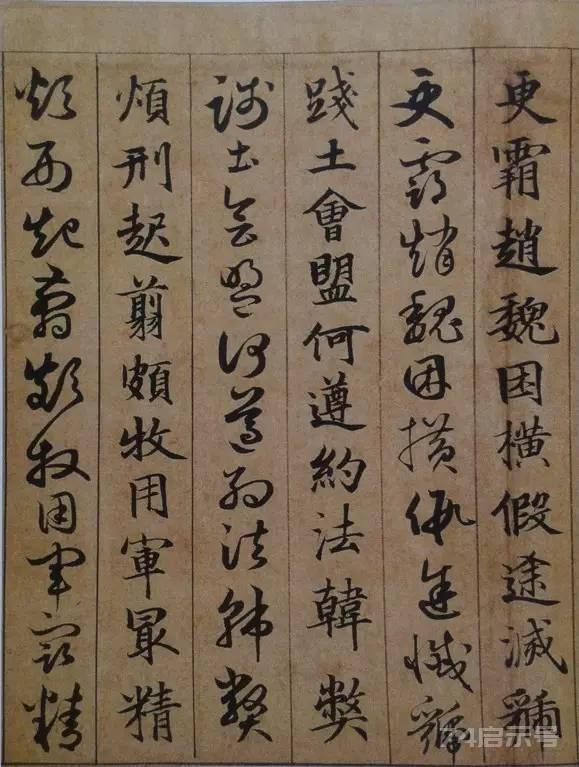 更霸趙魏困橫假途滅虢
更霸趙魏困橫假途滅虢
踐土會盟何遵約法韓弊
踐土會盟何遵約法韓弊
煩刑起翦頗牧用軍最精
煩刑起翦頗牧用軍最精
启示号